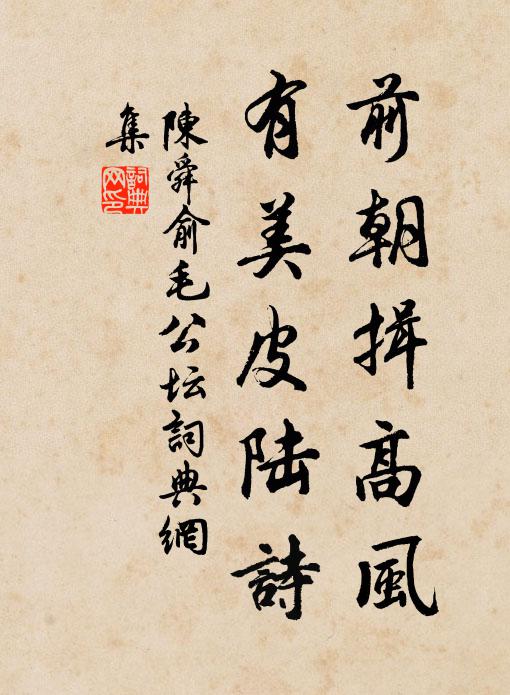 前朝揖高風
有美皮陆詩
陳舜俞毛公坛詞典網
集
詞典网印